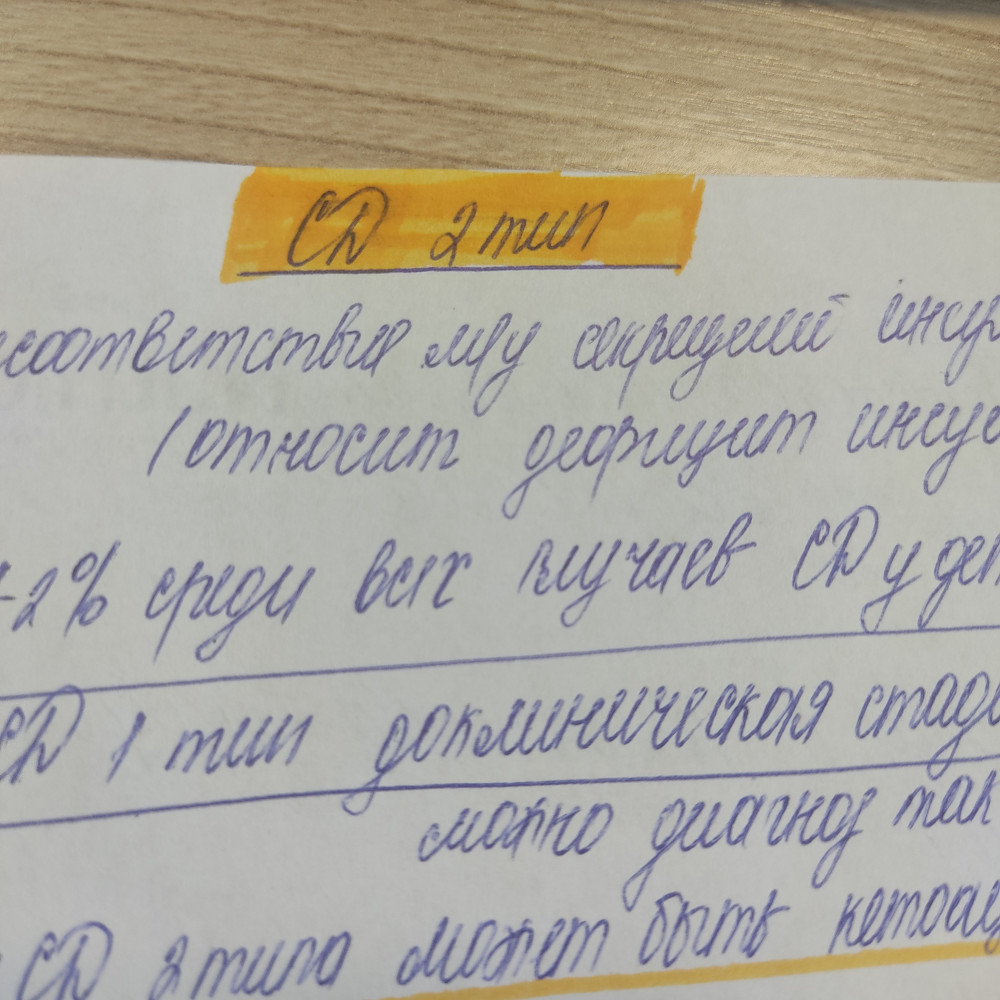 СД 2 тип
несоответствия м/у секрецией инсу
(относит дефицит инсу
-2% среди всех случаев СД у дет
СД 1 тип доклиническая стади
можно диагноз так
СД 2 типа может быть кетоац